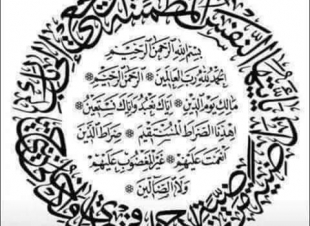 يا أيتها النفس المطمئنة ارجعي إلى
بسم الله الرحمن الرحيم
الحمد لله رب العالمين * الرحمن الرحيم *
مالك يوم الدين * إياك نعبد وإياك نستعين *
اهدنا الصراط المستقيم * صراط الذين
أنعمت عليهم * غير المغضوب عليهم
ولا الضالين *